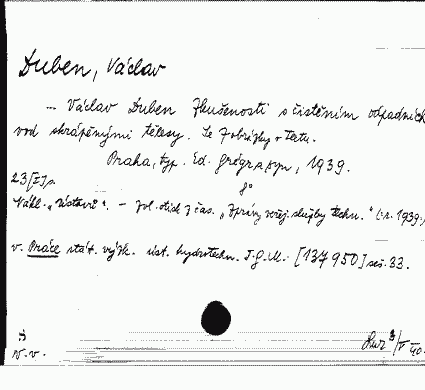 Duben, Václav
— Václav Duben Zkušenosti s čistěním odpadních
vod skrápěnými tělesy. Se 7 obrázky v textu.
Praha, typ. Ed. Grégr a syn, 1939.
23 [I] s. 8°
Nákl. „Ústavu". — Zvl. otisk z čas. „Zprávy veř. služby techn." (r. 1939.)
v. Práce stát. výzk. úst. hydrotechn. T. G. M. [137950] seš. 33.
N. v.